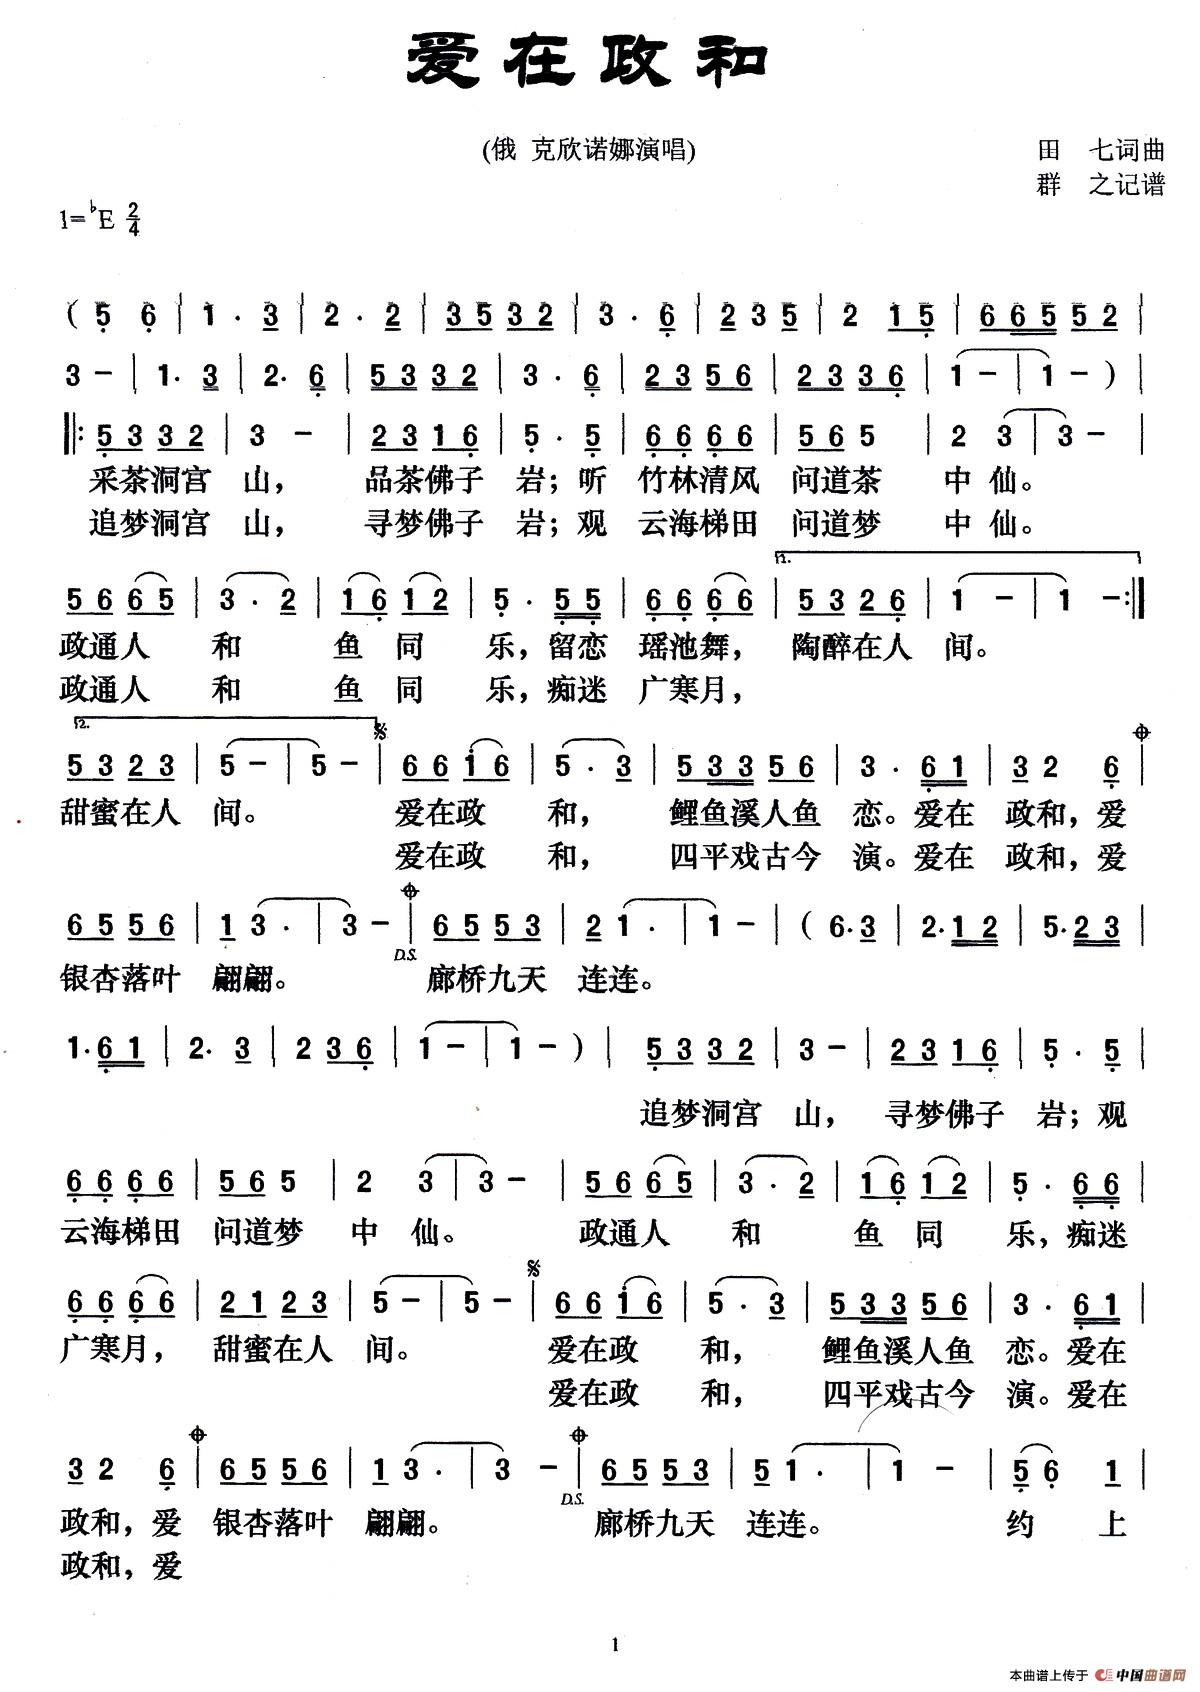 爱在政和
(俄 克欣诺娜演唱)
田 七词曲
群 之记谱
1=♭E 2/4
( 5 6 | 1 · 3 | 2 · 2 | 3 5 3 2 | 3 · 6 | 2 3 5 | 2 1 5 | 6 6 5 5 5 2 |
3 - | 1 · 3 | 2 · 6 | 5 3 3 2 | 3 · 6 | 2 3 5 6 | 2 3 3 6 | 1 - | 1 - ) |
‖: 5 3 3 2 | 3 - | 2 3 1 6 | 5 · 5 | 6 6 6 6 | 5 6 5 | 2 3 | 3 - |
采茶洞宫 山， 品茶佛子 岩；听 竹林清风 问道茶 中 仙。
追梦洞宫 山， 寻梦佛子 岩；观 云海梯田 问道梦 中 仙。
1.
5 6 6 5 | 3 · 2 | 1 6 1 2 | 5 · 5 5 | 6 6 6 6 | 5 3 2 6 | 1 - | 1 - :‖
政通人 和 鱼 同 乐，留恋 瑶池舞， 陶醉在人 间。
政通人 和 鱼 同 乐，痴迷 广寒月，
2.
5 3 2 3 | 5 - | 5 - | 6 6 1 6 | 5 · 3 | 5 3 3 5 6 | 3 · 6 1 | 3 2 6 |
甜蜜在人 间。 爱在政 和， 鲤鱼溪人鱼 恋。爱在 政和，爱
爱在政 和， 四平戏古今 演。爱在 政和，爱
6 5 5 6 | 1 3 · | 3 - | 6 5 5 3 | 2 1 · | 1 - | ( 6 · 3 | 2 · 1 2 | 5 · 2 3 |
D.S.
银杏落叶 翩翩。 廊桥九天 连连。
1 · 6 1 | 2 · 3 | 2 3 6 | 1 - | 1 - ) | 5 3 3 2 | 3 - | 2 3 1 6 | 5 · 5 |
追梦洞宫 山， 寻梦佛子 岩；观
6 6 6 6 | 5 6 5 | 2 3 | 3 - | 5 6 6 5 | 3 · 2 | 1 6 1 2 | 5 · 6 6 |
云海梯田 问道梦 中 仙。 政通人 和 鱼 同 乐，痴迷
6 6 6 6 | 2 1 2 3 | 5 - | 5 - | 6 6 1 6 | 5 · 3 | 5 3 3 5 6 | 3 · 6 1 |
广寒月， 甜蜜在人 间。 爱在政 和， 鲤鱼溪人鱼 恋。爱在
爱在政 和， 四平戏古今 演。爱在
3 2 6 | 6 5 5 6 | 1 3 · | 3 - | 6 5 5 3 | 5 1 · | 1 - | 5 6 1 |
D.S.
政和，爱 银杏落叶 翩翩。 廊桥九天 连连。 约 上
政和，爱
1
本曲谱上传于 中国曲谱网